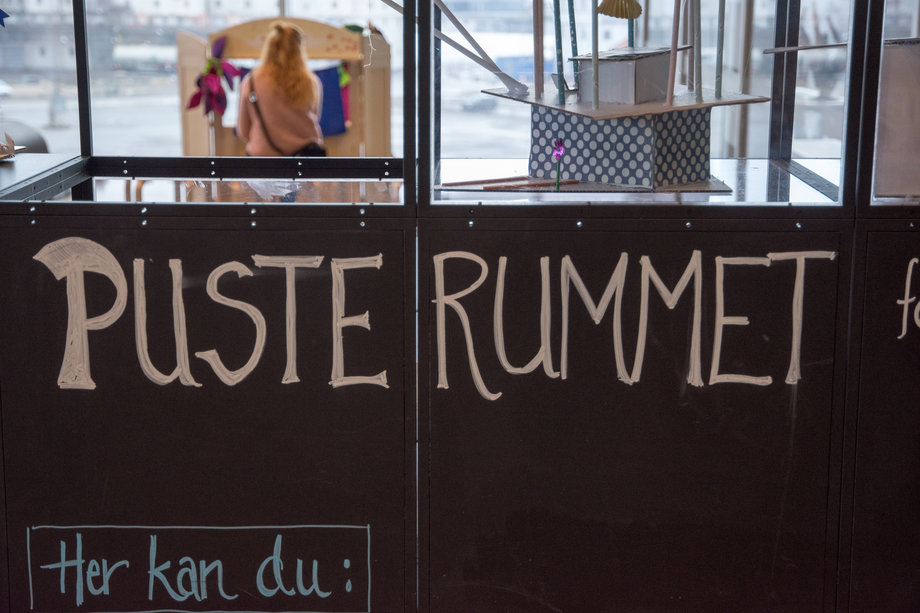 PUSTE RUMMET
Her kan du: